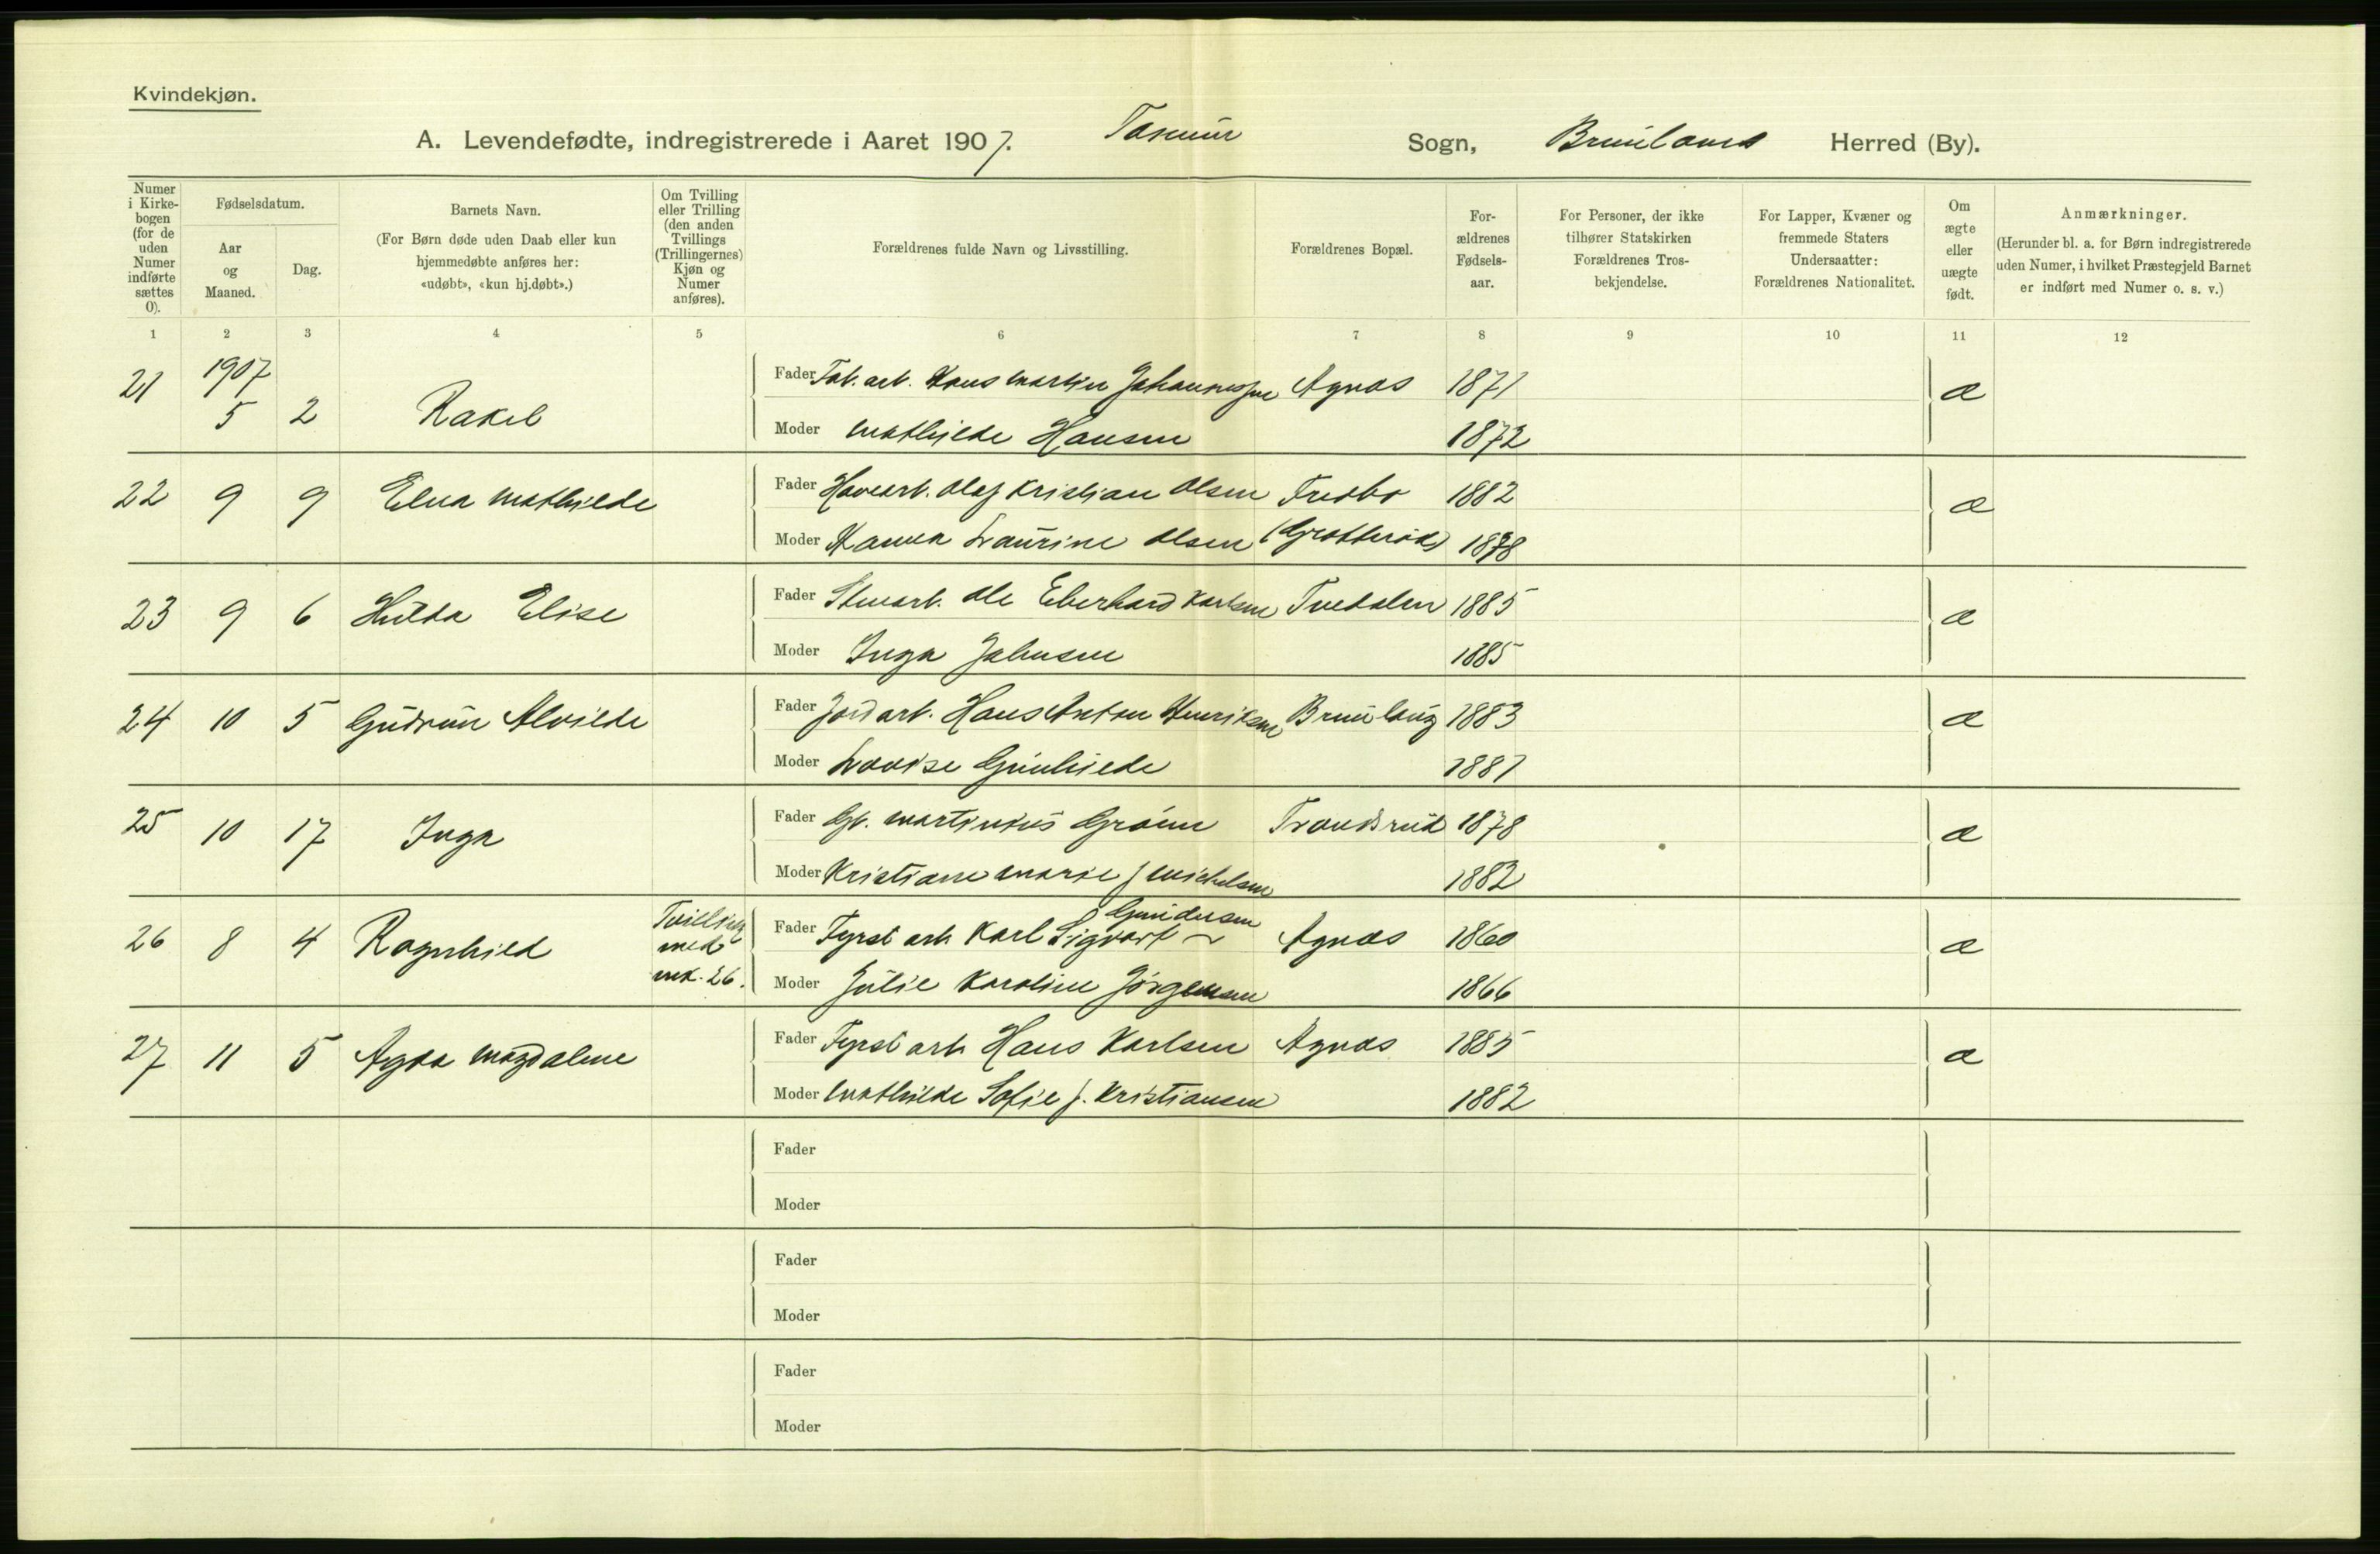 Kvindekjøn.
A. Levendefødte, indregistrerede i Aaret 1907. Tanum Sogn, Brunlanes Herred (By).
Numer i Kirkebogen (for de uden Numer indførte sættes 0).
Fødselsdatum.
Aar og Maaned.
Dag.
Barnets Navn.
(For Børn døde uden Daab eller kun hjemmedøbte anføres her: «udøbt», «kun hj.døbt».)
Om Tvilling eller Trilling (den anden Tvillings (Trillingernes) Kjøn og Numer anføres).
Forældrenes fulde Navn og Livsstilling.
Forældrenes Bopæl.
Forældrenes Fødselsaar.
For Personer, der ikke tilhører Statskirken Forældrenes Trosbekjendelse.
For Lapper, Kvæner og fremmede Staters Undersaatter: Forældrenes Nationalitet.
Om ægte eller uægte født.
Anmærkninger.
(Herunder bl. a. for Børn indregistrerede uden Numer, i hvilket Præstegjeld Barnet er indført med Numer o. s. v.)
1 2 3 4 5 6 7 8 9 10 11 12
21 1907 5 2 Rakel Fader Fab. arb. Hans Martin Johannessen Agnæs 1871 æ
Moder Mathilde Hansen 1872
22 9 9 Elna Mathilde Fader Havearb. Olaf Kristian Olsen 1882 æ
Moder Hanna Laurine Olsen 1878
23 9 6 Hilda Elise Fader Stenarb. Ole Eberhard Karlsen Tvedalen 1885 æ
Moder Inga Johnsen 1885
24 10 5 Gudrun Alvilde Fader Jordarb. Hans Anton Henriksen Brunlaug 1883 æ
Moder Lovise Gunhilde 1881
25 10 17 Inga Fader Gb. Martinius Grøinn Trondsrud 1878 æ
Moder Kristiane Marie f Michelsen 1882
26 8 4 Ragnhild Tvilling med mk. 26. Fader Fyrst arb Karl Sigvart Gundersen Agnæs 1860 æ
Moder Julie Karoline Jørgensen 1866
27 11 5 Agda Magdalene Fader Fyrst arb Hans Karlsen Agnæs 1885 æ
Moder Mathilde Sofie f. Kristiansen 1882
Fader
Moder
Fader
Moder
Fader
Moder